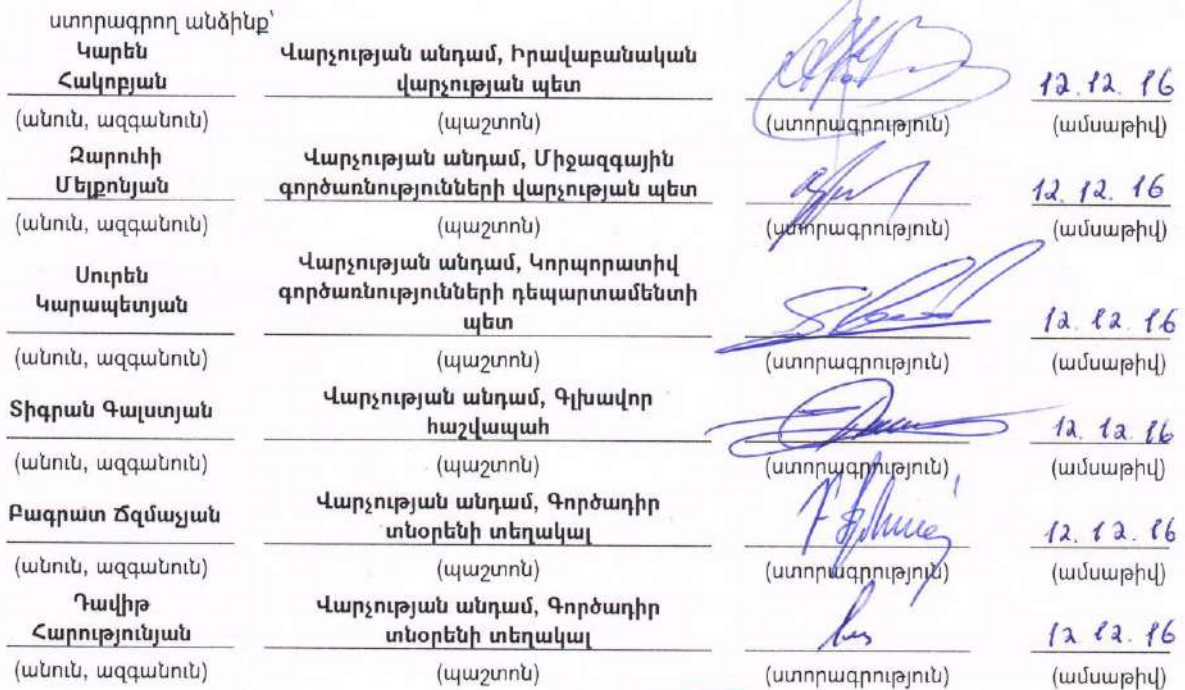 ստորագրող անձինք՝
Կարեն Վարչության անդամ, Իրավաբանական
Հակոբյան վարչության պետ 12.12.16
(անուն, ազգանուն) (պաշտոն) (ստորագրություն) (ամսաթիվ)
Զարուհի Վարչության անդամ, Միջազգային
Մելքոնյան գործառնությունների վարչության պետ 12.12.16
(անուն, ազգանուն) (պաշտոն) (ստորագրություն) (ամսաթիվ)
Սուրեն Վարչության անդամ, Կորպորատիվ
Կարապետյան գործառնությունների դեպարտամենտի
պետ 12.12.16
(անուն, ազգանուն) (պաշտոն) (ստորագրություն) (ամսաթիվ)
Տիգրան Գալստյան Վարչության անդամ, Գլխավոր
հաշվապահ 12.12.16
(անուն, ազգանուն) (պաշտոն) (ստորագրություն) (ամսաթիվ)
Բագրատ Ճզմաչյան Վարչության անդամ, Գործադիր
տնօրենի տեղակալ 12.12.16
(անուն, ազգանուն) (պաշտոն) (ստորագրություն) (ամսաթիվ)
Դավիթ Վարչության անդամ, Գործադիր
Հարությունյան տնօրենի տեղակալ 12.12.16
(անուն, ազգանուն) (պաշտոն) (ստորագրություն) (ամսաթիվ)